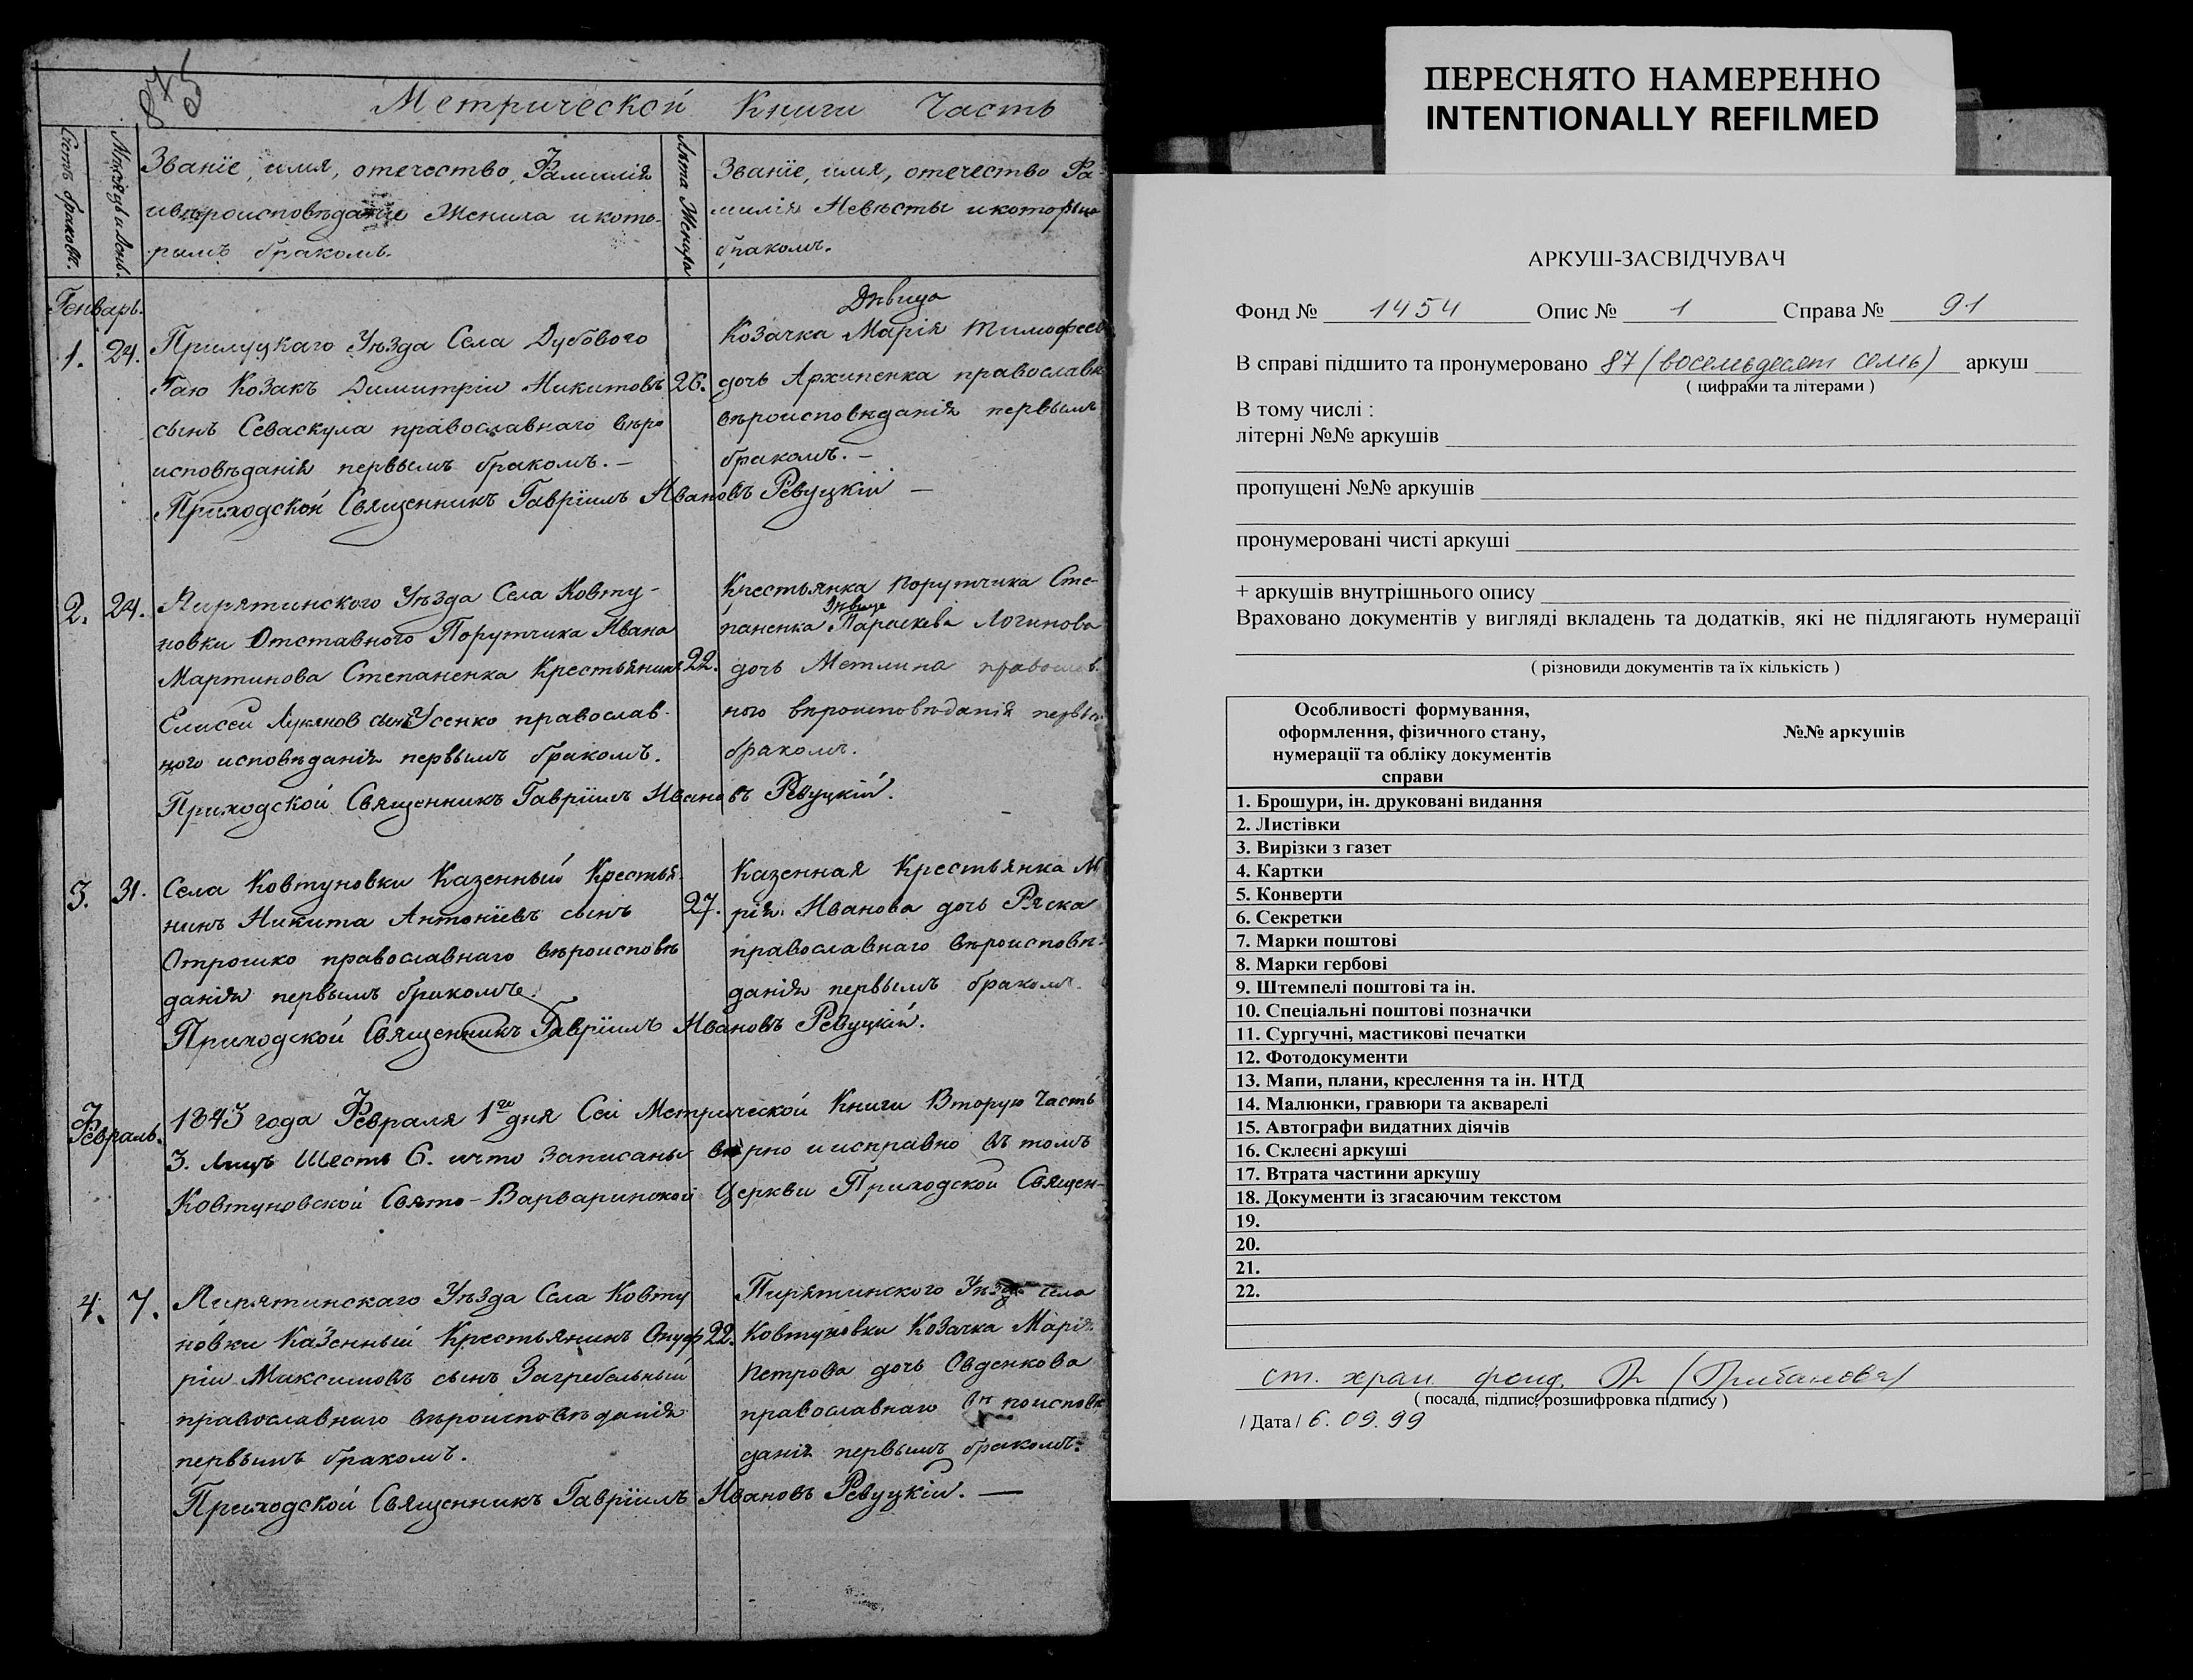 875
Метрической Книги Часть
Счетъ браковъ.
Мѣсяцъ и День.
Званіе, имя, отечество, Фамилія
и вѣроисповѣданіе Жениха и кото-
рымъ бракомъ.
Лѣта Жениха
Званіе, имя, отечество Фа-
милія Невѣсты и которымъ
бракомъ.
Генварь.
1. 24.
Прилуцкаго Уѣзда Села Дубового
Гаю Козакъ Димитрій Никитовъ
сынъ Севаскула православнаго вѣро
исповѣданія первымъ бракомъ. –
26.
Дѣвица
Козачка Марія Тимофеев
дочь Архипенка православн
вѣроисповѣданія первымъ
бракомъ. –
Приходской Священникъ Гавріилъ Ивановъ Ревуцкій –
2. 24.
Пирятинского Уѣзда Села Ковту-
новки Отставного Порутчика Ивана
Мартинова Степаненка Крестьянинъ
Елисей Лукянов сынъ Усенко православ-
ного исповѣданія первымъ бракомъ.
22.
Крестьянка Порутчика Сте-
паненка дѣвица Параскева Логинова
дочь Метлина православ-
ного вѣроисповѣданія первы
бракомъ.
Приходской Священникъ Гавріилъ Ивановъ Ревуцкій.
3. 31.
Села Ковтуновки Казенный Крестья-
нинъ Никита Антоніевъ сынъ
Отрошко православнаго вѣроисповѣ
данія первымъ бракомъ.
27.
Казенная Крестьянка М
рія Иванова дочь Ряска
православнаго вѣроисповѣ-
данія первымъ бракомъ.
Приходской Священникъ Гавріилъ Ивановъ Ревуцкій.
Февраль.
1843 года Февраля 1го дня Сей Метрической Книги Вторую Часть
3. Лицъ Шесть 6. и что записаны вѣрно и исправно въ томъ
Ковтуновской Свято-Варваринской Церкви Приходской Священ-
4. 7.
Пирятинскаго Уѣзда Села Ковту
новки Казенный Крестьянинъ Онуф
рій Максимовъ сынъ Загребельный
православнаго вѣроисповѣданія
первымъ бракомъ.
22.
Пирятинского Уѣзда Села
Ковтуновки Козачка Марія
Петрова дочь Овденкова
православнаго вѣроисповѣ
данія первымъ бракомъ.
Приходской Священникъ Гавріилъ Ивановъ Ревуцкій. —
ПЕРЕСНЯТО НАМЕРЕННО
INTENTIONALLY REFILMED
АРКУШ-ЗАСВІДЧУВАЧ
Фонд № 1454 Опис № 1 Справа № 91
В справі підшито та пронумеровано 87 (восемьдесят семь) аркуш
( цифрами та літерами )
В тому числі :
літерні №№ аркушів
пропущені №№ аркушів
пронумеровані чисті аркуші
+ аркушів внутрішнього опису
Враховано документів у вигляді вкладень та додатків, які не підлягають нумерації
( різновиди документів та їх кількість )
Особливості формування,
оформлення, фізичного стану,
нумерації та обліку документів
справи
№№ аркушів
1. Брошури, ін. друковані видання
2. Листівки
3. Вирізки з газет
4. Картки
5. Конверти
6. Секретки
7. Марки поштові
8. Марки гербові
9. Штемпелі поштові та ін.
10. Спеціальні поштові позначки
11. Сургучні, мастикові печатки
12. Фотодокументи
13. Мапи, плани, креслення та ін. НТД
14. Малюнки, гравюри та акварелі
15. Автографи видатних діячів
16. Склеєні аркуші
17. Втрата частини аркушу
18. Документи із згасаючим текстом
19.
20.
21.
22.
ст. хран. фонд.
( посада, підпис, розшифровка підпису )
/ Дата / 6.09.99